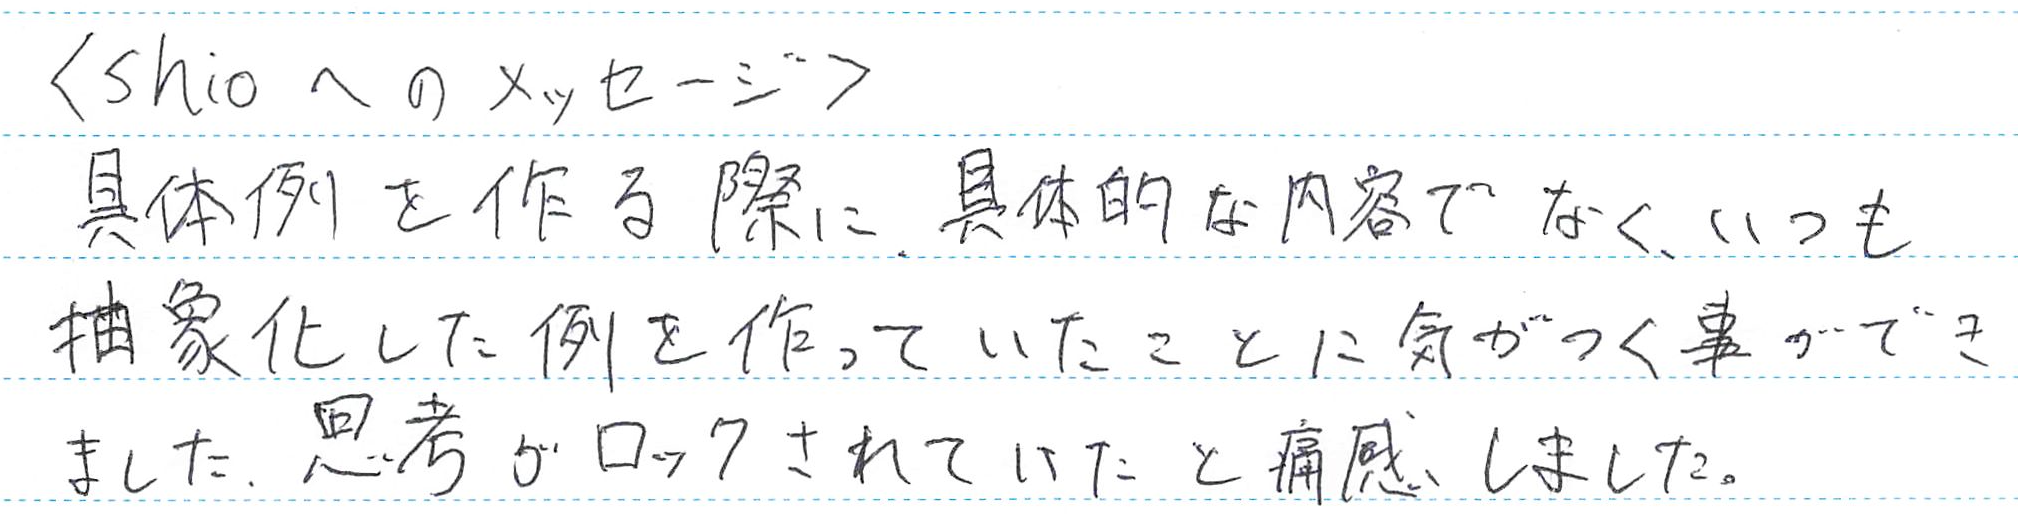 <shioへのメッセージ>
具体例を作る際に、具体的な内容でなく、いつも
抽象化した例を作っていたことに気がつく事ができ
ました。思考がロックされていたと痛感しました。